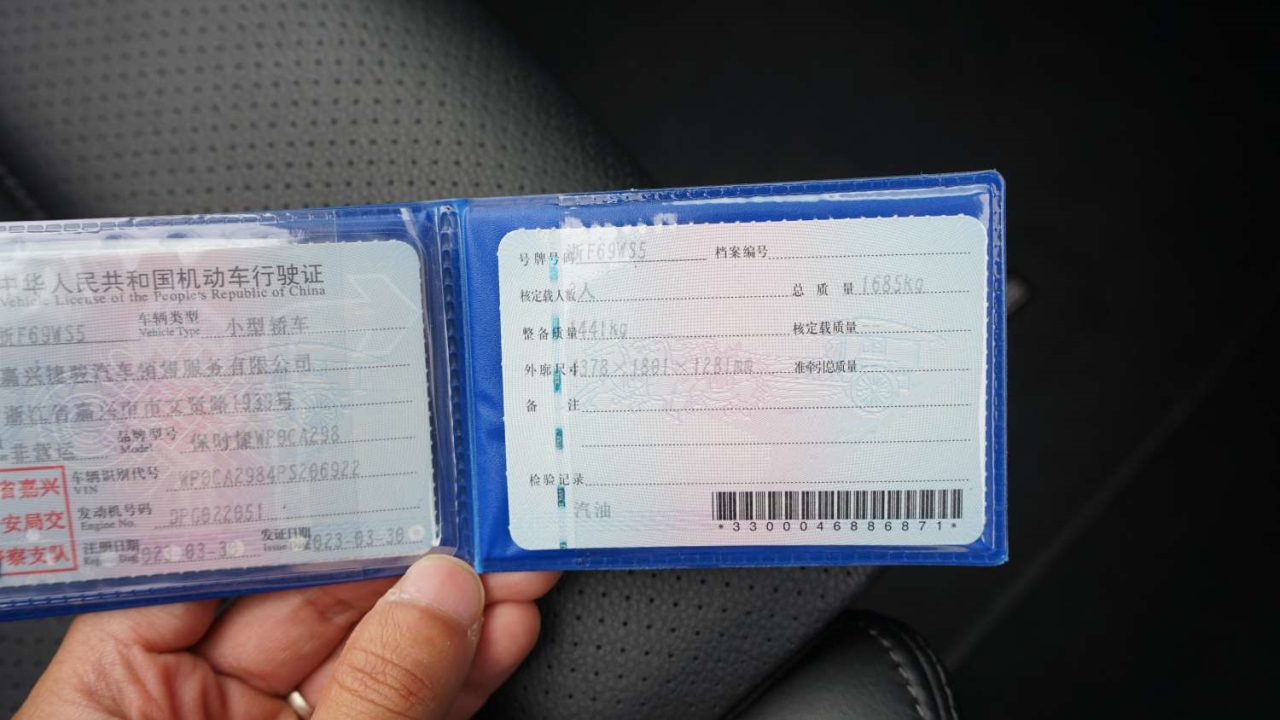 中华人民共和国机动车行驶证
Vehicle License of the People's Republic of China
浙F69WS5 车辆类型 Vehicle Type 小型轿车
嘉兴捷骏汽车销售服务有限公司
浙江省嘉兴市市文贤路1939号
非营运 品牌型号 Model 保时捷WP0CA298
省嘉兴
安局交
警察支队
车辆识别代号 VIN WP0CA2984PS206922
发动机号码 Engine No. DPG022851
注册日期 2023-03-30 发证日期 Issue Date 2023-03-30
号牌号码 浙F69WS5 档案编号
核定载人数 2人 总质量 1685kg
整备质量 1441kg 核定载质量
外廓尺寸 4378×1801×1281mm 准牵引总质量
备注
检验记录
汽油
*3300046886871*